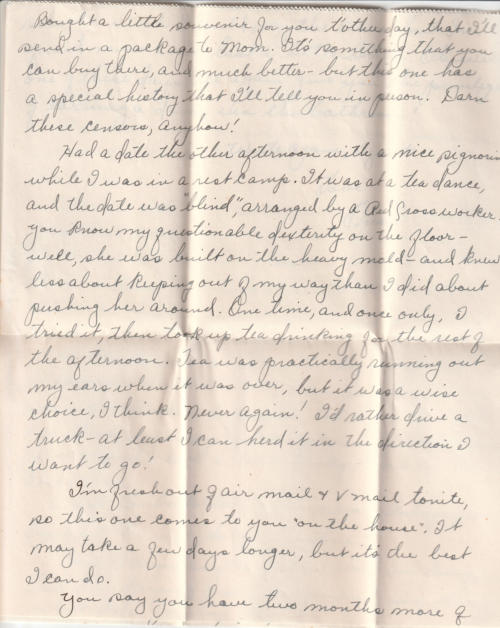 Bought a little souvenir for you t'other day, that I'll
send in a package to Mom. It's something that you
can buy there, and much better - but this one has
a special history that I'll tell you in person. Darn
these censors, anyhow!
Had a date the other afternoon with a nice signorina
while I was in a rest camp. It was at a tea dance,
and the date was "blind", arranged by a Red Cross worker.
You know my questionable dexterity on the floor -
well, she was built on the heavy mold - and knew
less about keeping out of my way than I did about
pushing her around. One time, and once only, I
tried it, then took up tea drinking for the rest of
the afternoon. Tea was practically running out
my ears when it was over, but it was a wise
choice, I think. Never again! I'd rather drive a
truck - at least I can herd it in the direction I
want to go!
I'm fresh out of air mail & V mail tonite,
so this one comes to you "on the house". It
may take a few days longer, but it's the best
I can do.
You say you have two months more of